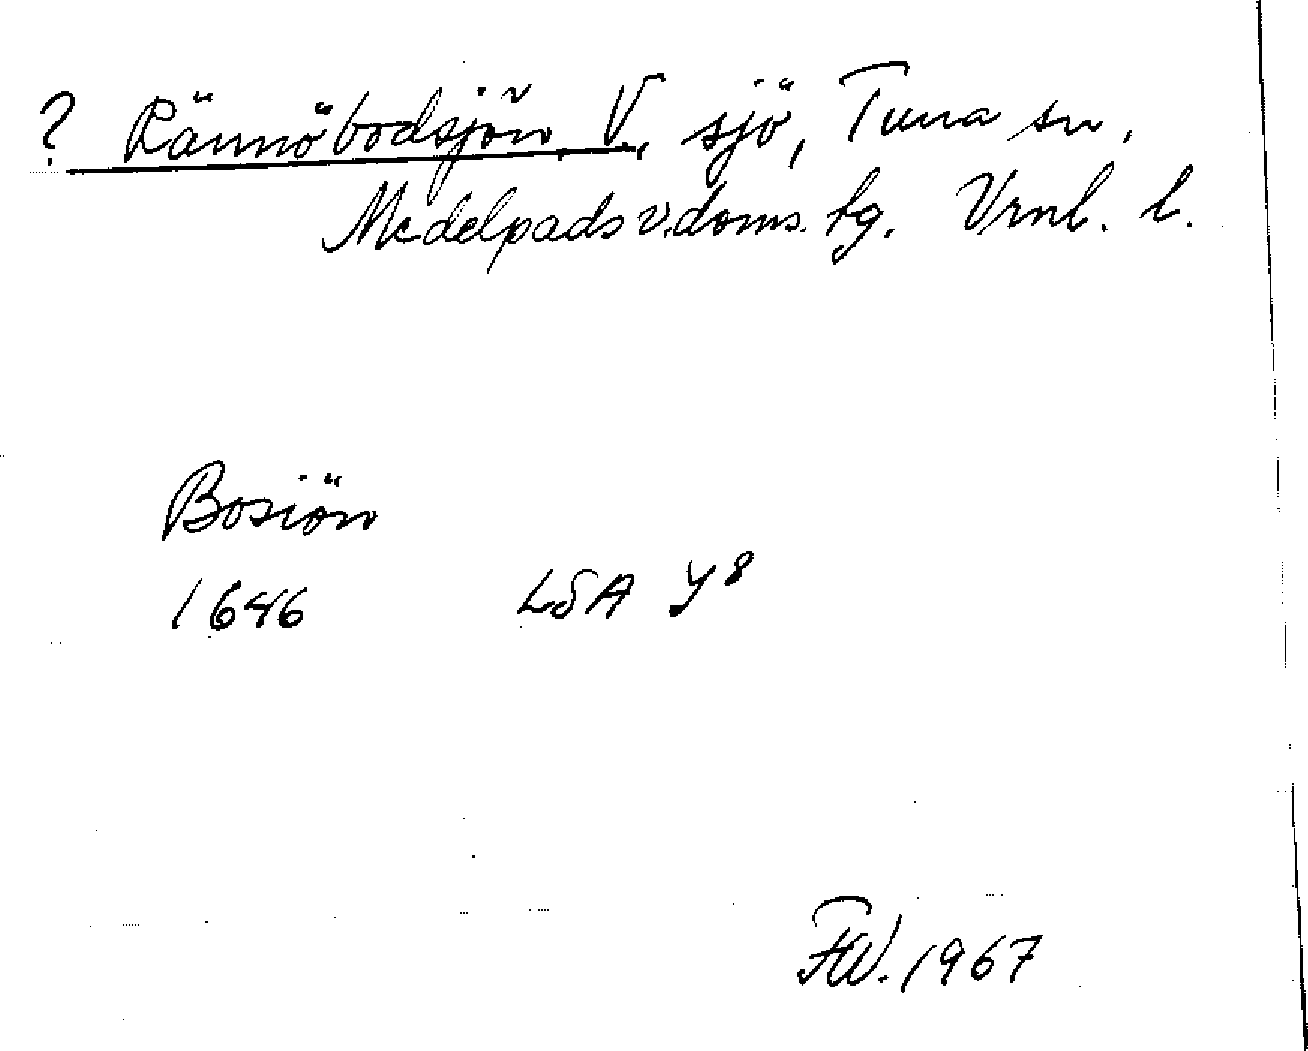 ? Rännöbodsjön, V., sjö, Tuna sn,
Medelpads v. doms. tg. Vrnl. l.
Bosiön
1646 LSA Y8
FW. 1967